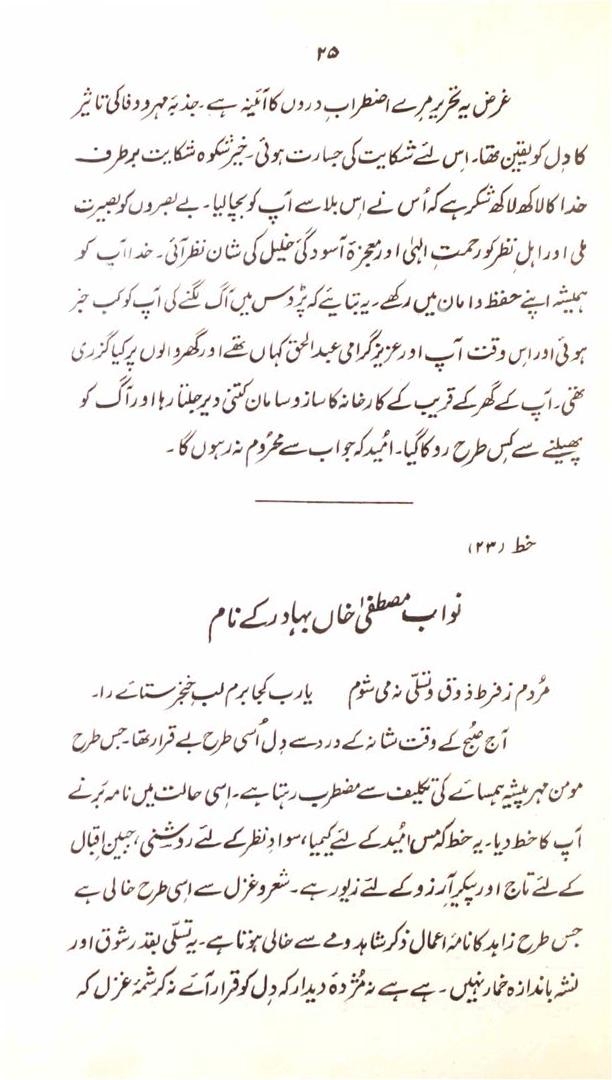 ۲۵
غرض یہ تحریر مرے اضطرابِ دروں کا آئینہ ہے۔ جذبۂ مہر و وفا کی تاثیر
کا دِل کو یقین تھا۔ اِس لئے شکایت کی جسارت ہوئی۔ خیر شکوہ شکایت برطرف
خدا کا لاکھ لاکھ شکر ہے کہ اُس نے اِس بلا سے آپ کو بچالیا۔ بے بصروں کو بصیرت
ملی اور اہلِ نظر کو رحمتِ الہٰی اور معجزۂ آسودگیٔ خلیل کی شان نظر آئی۔ خدا آپ کو
ہمیشہ اپنے حفظ و امان میں رکھے۔ یہ بتایئے کہ پڑوس میں آگ لگنے کی آپ کو کب خبر
ہوئی اور اِس وقت آپ اور عزیز گرامی عبدالحق کہاں تھے اور گھر والوں پر کیا گزری
تھی۔ آپ کے گھر کے قریب کے کارخانہ کا ساز و سامان کتنی دیر جلتا رہا اور آگ کو
پھیلنے سے کِس طرح روکا گیا۔ اُمید کہ جواب سے محرُوم نہ رہوں گا۔
خط (۲۳)
نواب مصطفیٰ خاں بہادر کے نام
مُردم ز فرط ذوق و تسلّی نہ می شوم یارب کجا برم لبِ خنجر ستائے را۔
آج صبُح کے وقت شانہ کے درد سے دِل اُسی طرح بے قرار تھا۔ جس طرح
مومن مہر پیشہ ہمسائے کی تکلیف سے مضطرب رہتا ہے۔ اِسی حالت میں نامہ بَر نے
آپ کا خط دیا۔ یہ خط کہ مسِ اُمید کے لئے کیمیا، سوادِ نظر کے لئے روشنی، جبینِ اقبال
کے لئے تاج اور پیکرِ آرزو کے لئے زیور ہے۔ شعر و غزل سے اِسی طرح خالی ہے
جس طرح زاہد کا نامۂ اعمال ذکرِ شاہد و مے سے خالی ہوتا ہے۔ یہ تسلّی بقدر شوق اور
نشہ باندازہ خمار نہیں۔ ہے ہے نہ مُژدۂ دیدار کہ دِل کو قرار آئے نہ کرشمۂ غزل کہ